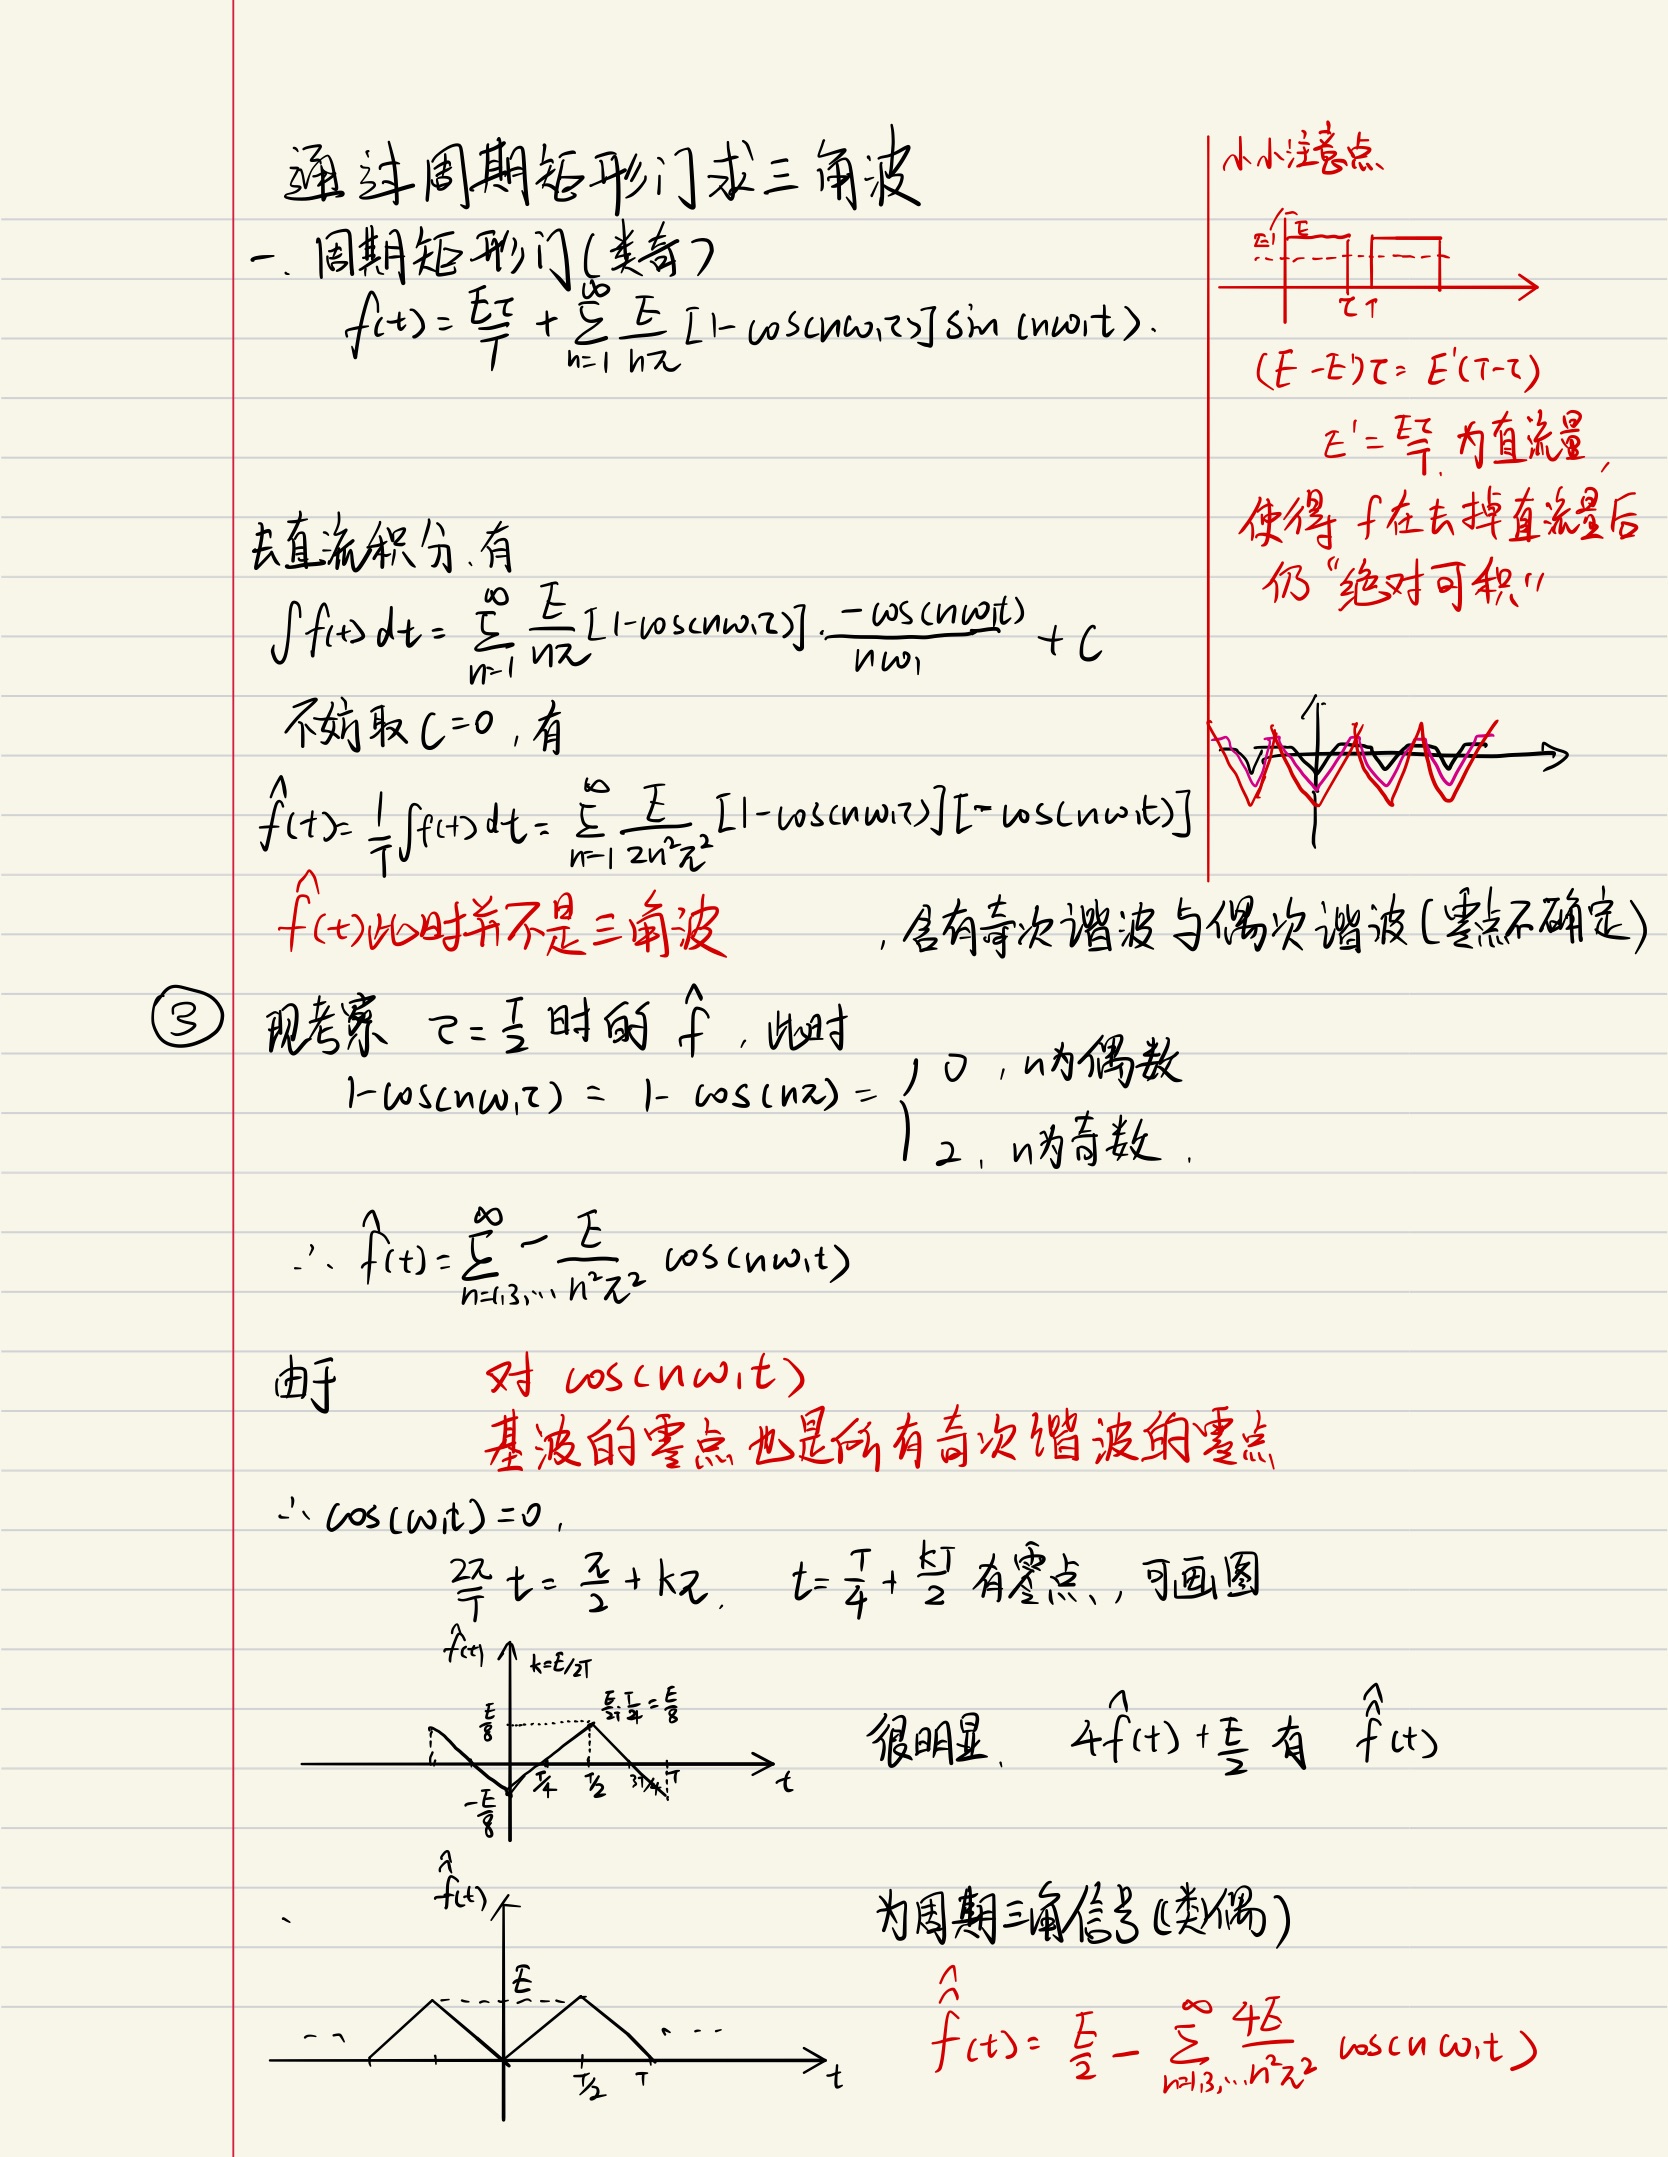 通过周期矩形门求三角波
一. 周期矩形门(类奇)
f(t) = Eτ/T + ∑_{n=1}^{∞} E/nπ [1-cos(nω₁τ)] sin(nω₁t).
去直流积分,有
∫f(t)dt = ∑_{n=1}^{∞} E/nπ [1-cos(nω₁τ)]·-cos(nω₁t)/nω₁ + C
不妨取 C=0,有
f̂(t) = 1/T ∫f(t)dt = ∑_{n=1}^{∞} E/2n²π² [1-cos(nω₁τ)][-cos(nω₁t)]
f̂(t)此时并不是三角波 ,含有奇次谐波与偶次谐波(零点不确定)
③ 现考察 τ=T/2 时的 f̂,此时
1-cos(nω₁τ) = 1-cos(nπ) = { 0,n为偶数
2,n为奇数.
∴ f̂(t) = ∑_{n=1,3,...}^{∞} -E/n²π² cos(nω₁t)
由于 对 cos(nω₁t)
基波的零点也是所有奇次谐波的零点
∴ cos(ω₁t)=0,
2π/T t = π/2 + kπ. t = T/4 + kT/2 有零点,可画图
f̂(t) k=E/2T
E/8 E/2T·T/4=E/8
T/4 T/2 3T/4 T t
-E/8
很明显, 4f̂(t) + E/2 有 f̂̂(t)
f̂̂(t)
E
T/2 T t
为周期三角信号(类偶)
f̂̂(t) = E/2 - ∑_{n=1,3,...}^{∞} 4E/n²π² cos(nω₁t)
小小注意点
E' E
τ T
(E-E')τ = E'(T-τ)
E' = Eτ/T.为直流量,
使得 f 在去掉直流量后
仍“绝对可积”